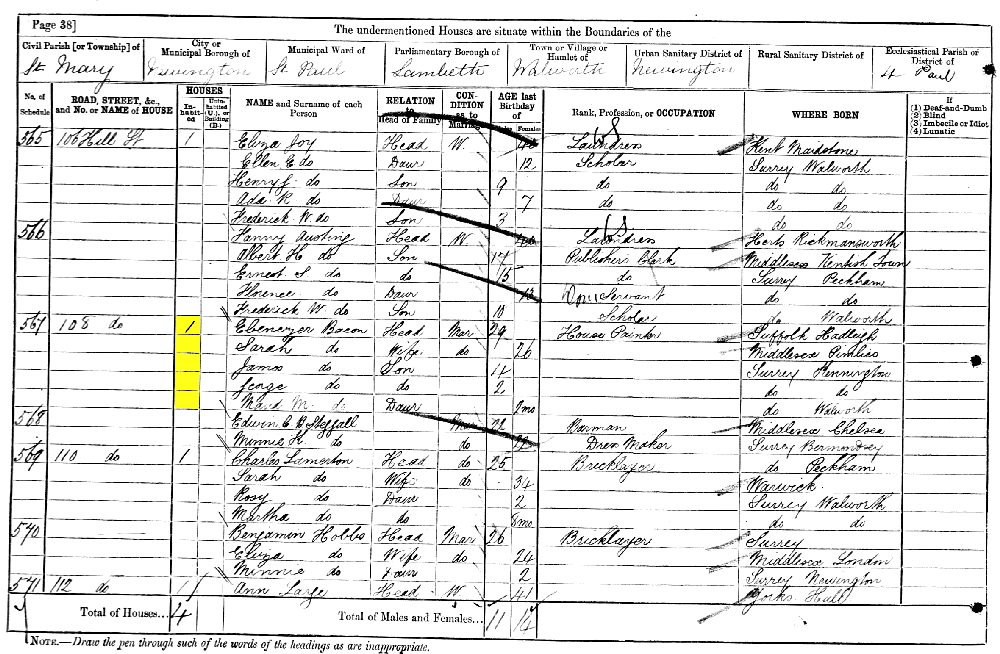 Page 38]
The undermentioned Houses are situate within the Boundaries of the
Civil Parish [or Township] of St. Mary
City or Municipal Borough of Newington
Municipal Ward of St. Paul
Parliamentary Borough of Lambeth
Town or Village or Hamlet of Walworth
Urban Sanitary District of Newington
Rural Sanitary District of
Ecclesiastical Parish or District of St Paul
No. of Schedule
ROAD, STREET, &c., and No. or NAME of HOUSE
HOUSES
In-habit-ed
Unin-habited (U.), or Building (B.)
NAME and Surname of each Person
RELATION to Head of Family
CON-DITION as to Marriage
AGE last Birthday of
Males Females
Rank, Profession, or OCCUPATION
WHERE BORN
If
(1) Deaf-and-Dumb
(2) Blind
(3) Imbecile or Idiot
(4) Lunatic
565 106 Hill St 1 Eliza Joy Head W. Laundress Kent Maidstone
Ellen E do Daur 12 Scholar Surrey Walworth
Henry J. do Son 9 do do do
Ada R do Daur 7 do do do
Frederick W. do Son 3 do do
566 Fanny Austing Head W Laundress Herts Rickmansworth
Albert H do Son 17 Publisher's Clerk Middlesex Kentish Town
Ernest S do do 15 do Surrey Peckham
Florence do Daur 13 Servant do do
Frederick W do Son 10 Scholar do Walworth
567 108 do 1 Ebenezer Bacon Head Mar 29 House Painter Suffolk Hadleigh
Sarah do Wife do 26 Middlesex Pimlico
James do Son 4 Surrey Kennington
George do do 2 do do
Maud M. do Daur 2mo do Walworth
568 Edwin C Steffall Mar 22 Barman Middlesex Chelsea
Minnie K. do do 22 Dress Maker Surrey Bermondsey
569 110 do 1 Charles Lamerton Head do 25 Bricklayer do Peckham
Sarah do Wife do 34 Warwick
Rosy do Daur 2 Surrey Walworth
Martha do do 8mo do do
570 Benjamin Hobbs Head Mar 26 Bricklayer Surrey
Eliza do Wife do 24 Middlesex London
Minnie do Daur 2 Surrey Newington
571 112 do 1 Ann Large Head W 41 Yorks Hull
Total of Houses... 4
Total of Males and Females... 11 14
NOTE.—Draw the pen through such of the words of the headings as are inappropriate.